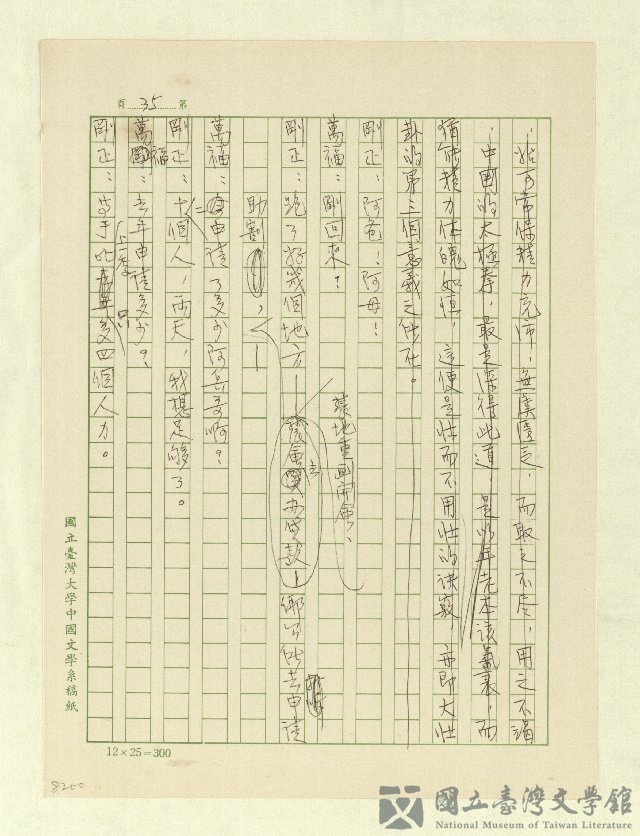 第 35 頁
，始可常保精力充沛，無虞匱乏，而取之不尽，用之不竭
，中國的太極拳，最是深得此道，是以年老本該氣衰，而
猶能精力体魄如恒，這便是壯而不用壯的訣竅，亦即大壯
卦的第三個意義之所在。
剛正：阿爸！阿母！
萬福：剛回來？
農地重画
剛正：跑了好幾個地方—
農會
去
办貸款—鄉公所去申請
助割
，—
萬福：申請了多少阿兵哥啊？
剛正：十個人，兩天，我想足够了。
萬福：去年申請多少？
剛正：
上季
只
多四個人力。
國立臺灣大學中國文學系稿紙
12×25=300
8200
國立臺灣文學館
National Museum of Taiwan Literature